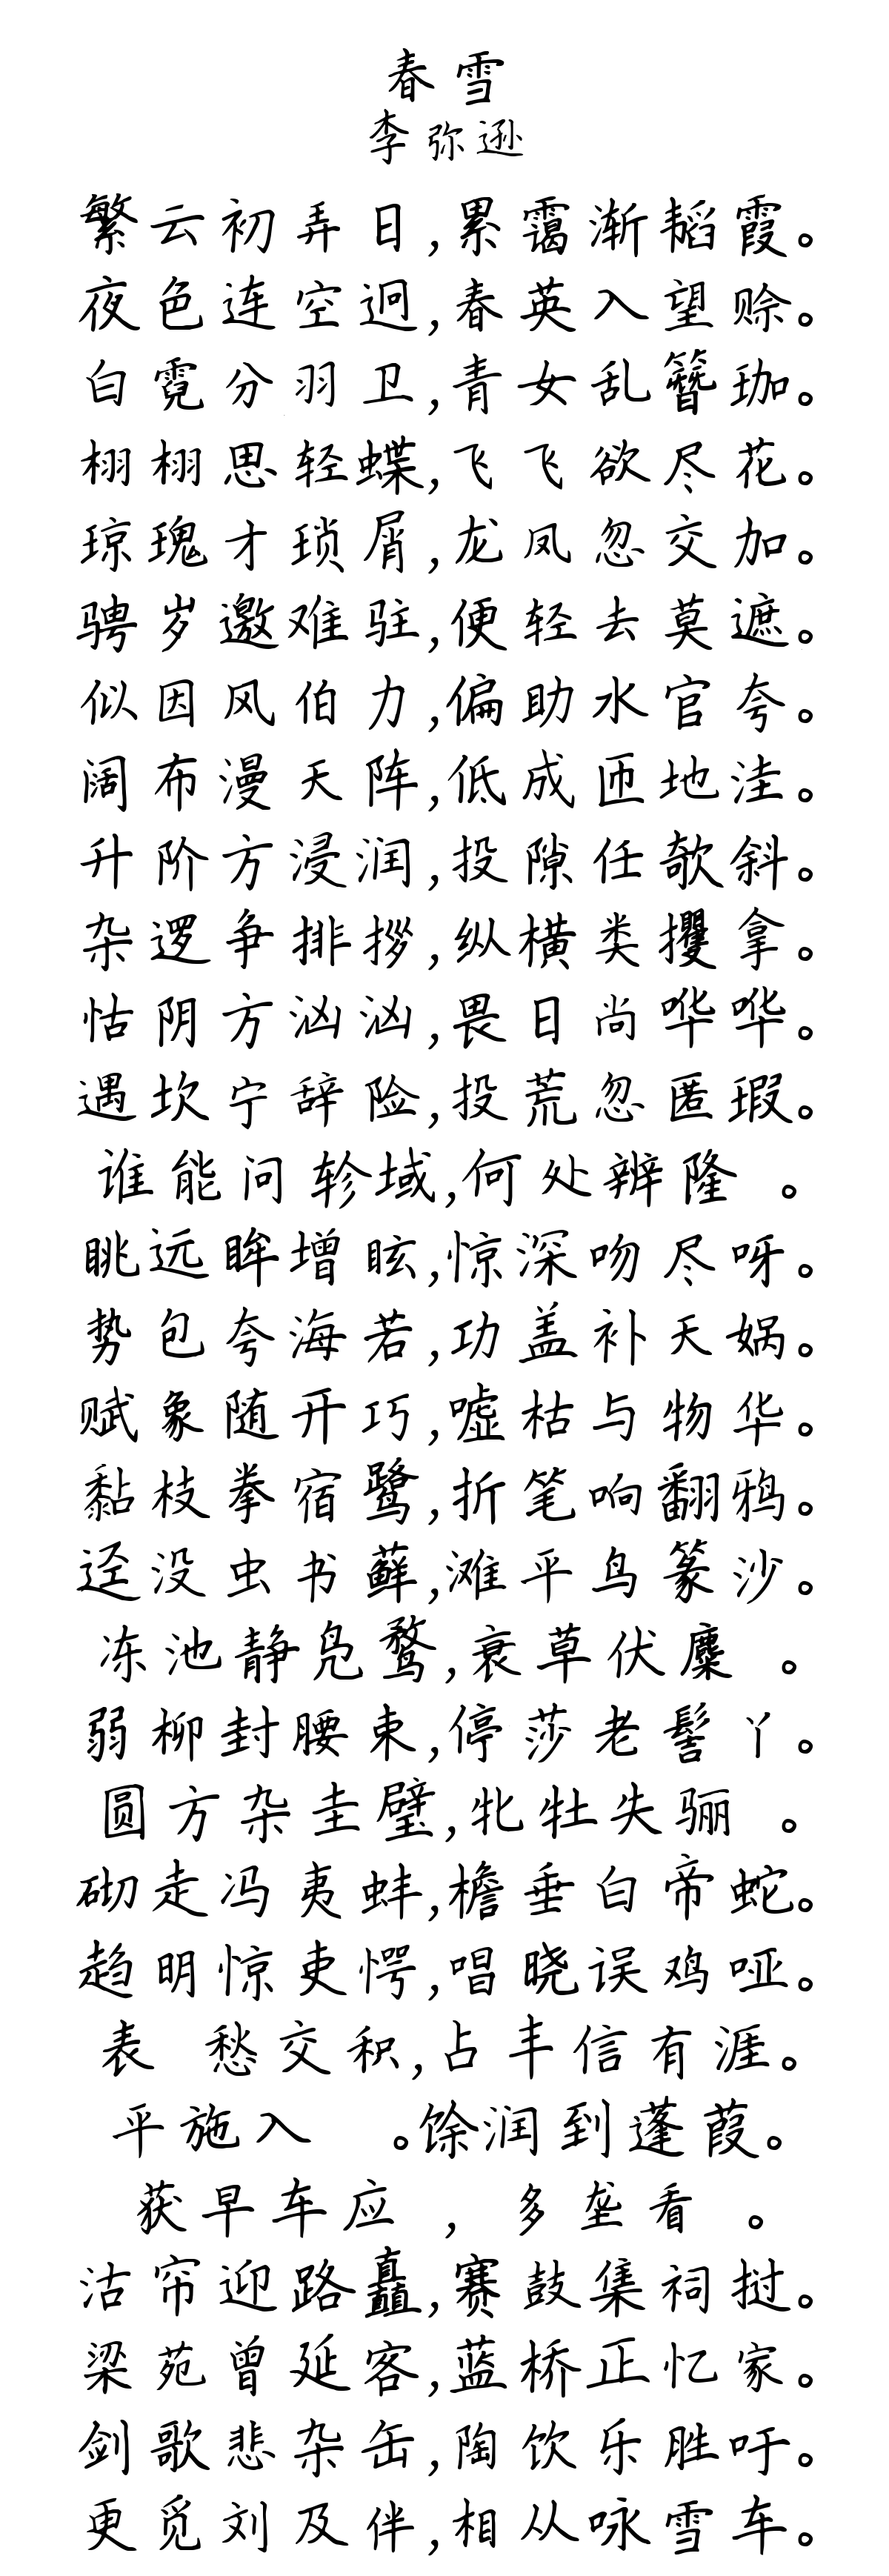 春雪
李弥逊
繁云初弄日,累霭渐韬霞。
夜色连空迥,春英入望赊。
白霓分羽卫,青女乱簪珈。
栩栩思轻蝶,飞飞欲尽花。
琼瑰才琐屑,龙凤忽交加。
骋岁邀难驻,便轻去莫遮。
似因风伯力,偏助水官夸。
阔布漫天阵,低成匝地洼。
升阶方浸润,投隙任欹斜。
杂逻争排拶,纵横类攫拿。
怙阴方汹汹,畏日尚哗哗。
遇坎宁辞险,投荒忽匿瑕。
谁能问轸域,何处辨隆 。
眺远眸增眩,惊深吻尽呀。
势包夸海若,功盖补天娲。
赋象随开巧,嘘枯与物华。
黏枝拳宿鹭,折笔响翻鸦。
迳没虫书藓,滩平鸟篆沙。
冻池静凫鹜,衰草伏麇 。
弱柳封腰束,停莎老髻丫。
圆方杂圭璧,牝牡失骊 。
砌走冯夷蚌,檐垂白帝蛇。
趋明惊吏愕,唱晓误鸡哑。
表 愁交积,占丰信有涯。
平施入 。馀润到蓬葭。
获早车应 ,多垄看 。
沽帘迎路矗,赛鼓集祠挝。
梁苑曾延客,蓝桥正忆家。
剑歌悲杂缶,陶饮乐胜吁。
更觅刘及伴,相从咏雪车。